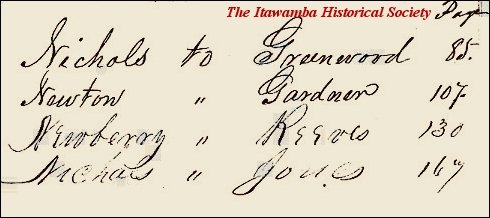 The Itawamba Historical Society Page
Nichols to Greenwood 85.
Newton " Gardner 107
Newberry " Reeves 130
Nichols " Jones 167